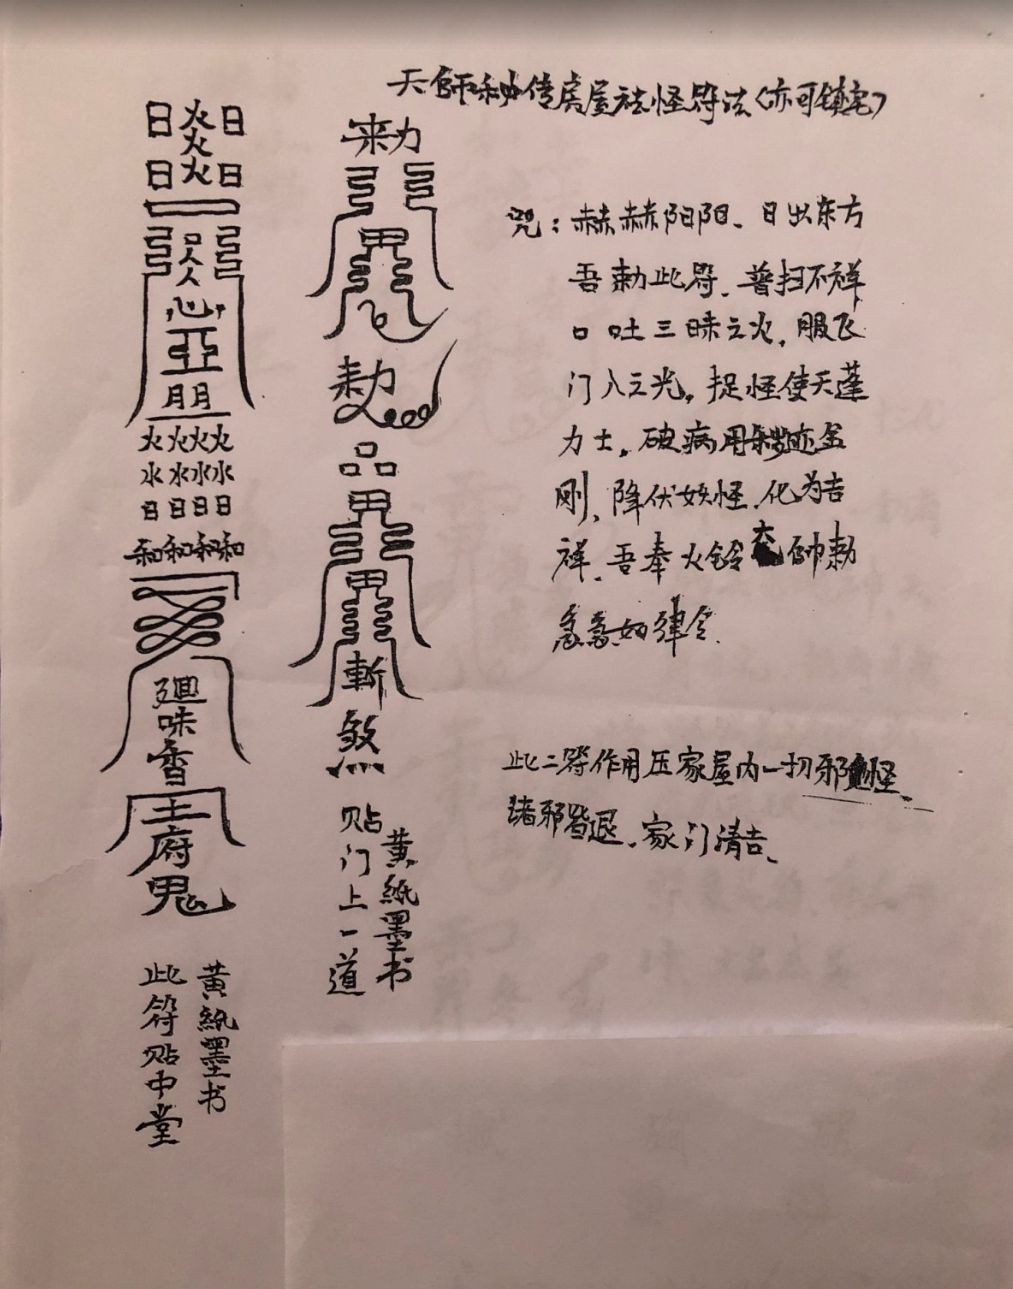 天師秘传房屋祛怪符法〈亦可镇宅〉
咒：赫赫阳阳、日出东方
吾勅此符、普扫不祥
口吐三昧之火，服飞
门入之光。捉怪使天蓬
力士。破病用秽迹金
刚、降伏妖怪、化为吉
祥、吾奉火铃大帥勅
急急如律令.
此二符作用压家屋内一切邪怪、
诸邪皆退、家门清吉、
勅
甲
勅
品
甲
甲
斬
煞
黄紙墨书
贴门上一道
日火日
火
日火日
口
人人
心
亞
朋
火火火火
水水水水
日日日日
和和和和
廻
味
香
王
府
鬼
黄紙墨书
此符贴中堂